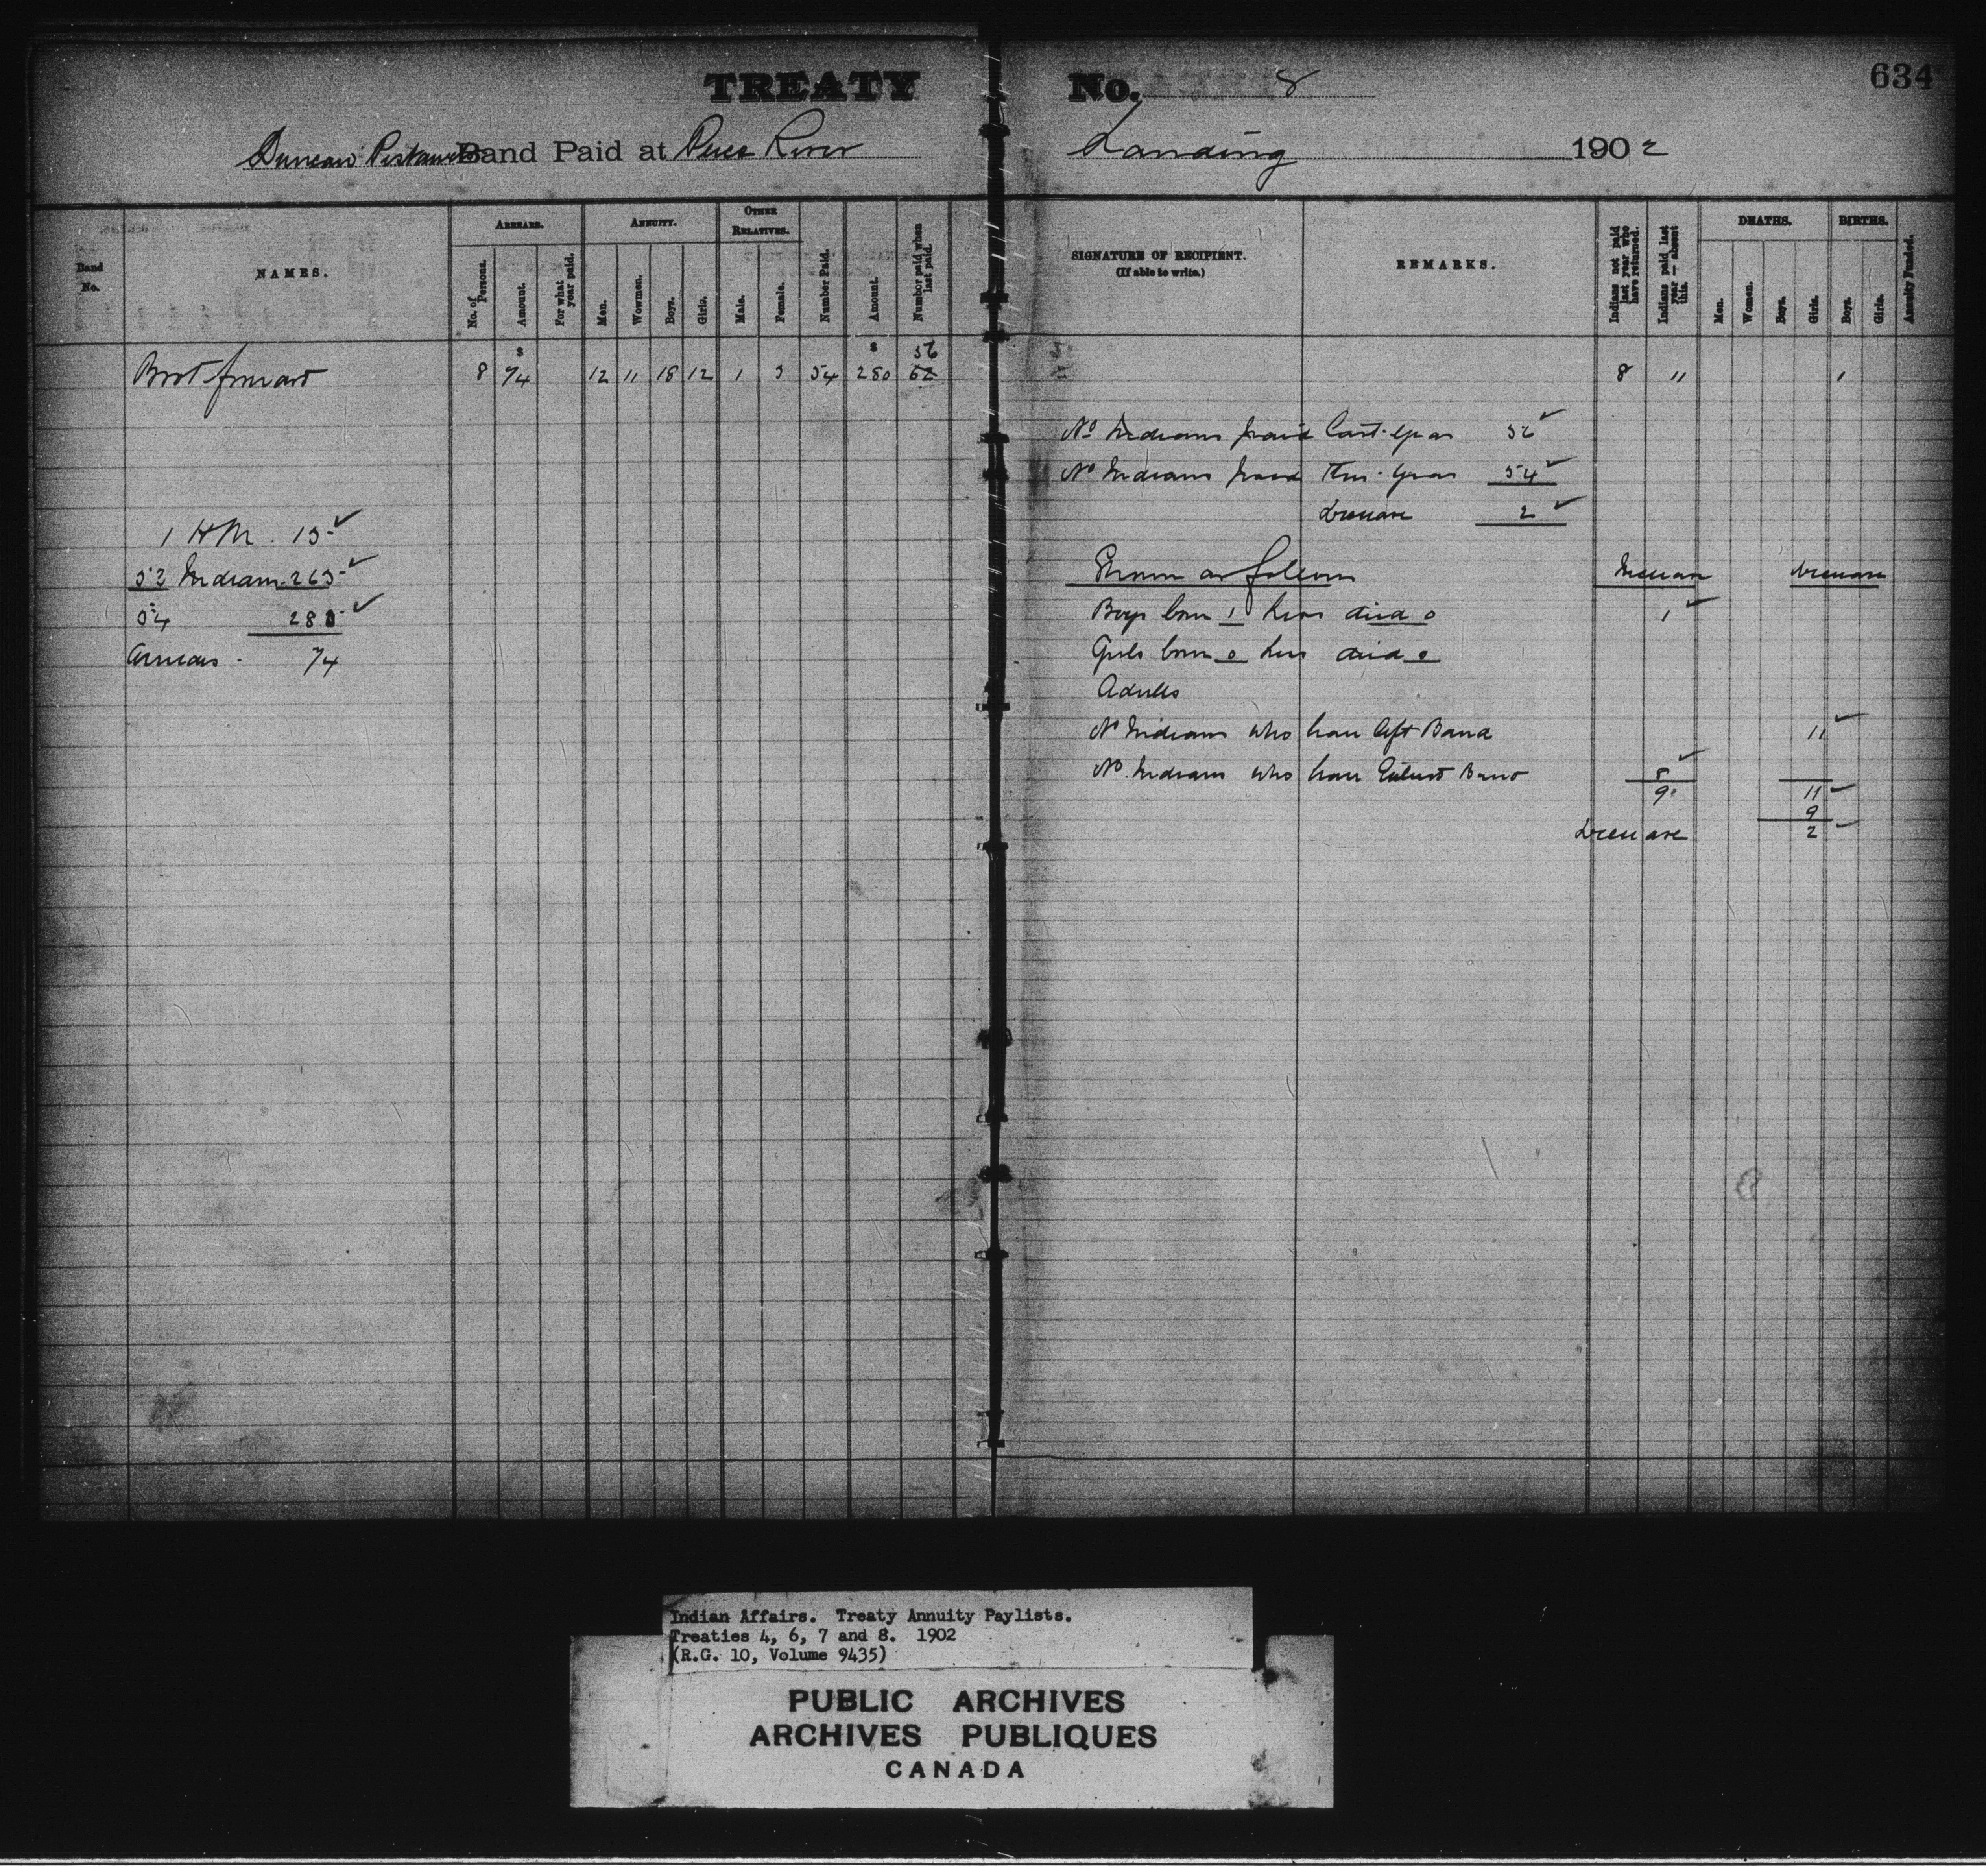 TREATY No. 8
634
Duncan Band Paid at Peace River Landing 1902
Band No.
NAMES.
ARREARS.
No. of Persons.
Amount.
For what year paid.
ANNUITY.
Men.
Wowmen.
Boys.
Girls.
OTHER RELATIVES.
Male.
Female.
Number Paid.
Amount.
Number paid when last paid.
SIGNATURE OF RECIPIENT.
(If able to write.)
REMARKS.
Indians not paid last year who have returned.
Indians paid last year — absent this.
DEATHS.
Men.
Women.
Boys.
Girls.
BIRTHS.
Boys.
Girls.
Annuity Funded.
$ $ 56
Brot forward 8 74 12 11 15 12 1 3 54 280 62 8 11 1
No Indians paid Last Year 56
No Indians paid This Year 54
Decrease 2
1 HM. 15
53 Indians 265
54 280
Arrears 74
Shown as follows Increase Decrease
Boys born 1 Less died 0 1
Girls born 0 Less died 0
Adults
No Indians who have left Band 11
No. Indians who have Entered Band 8
9 11
9
Decrease 2
Indian Affairs. Treaty Annuity Paylists.
Treaties 4, 6, 7 and 8. 1902
(R.G. 10, Volume 9435)
PUBLIC ARCHIVES
ARCHIVES PUBLIQUES
CANADA